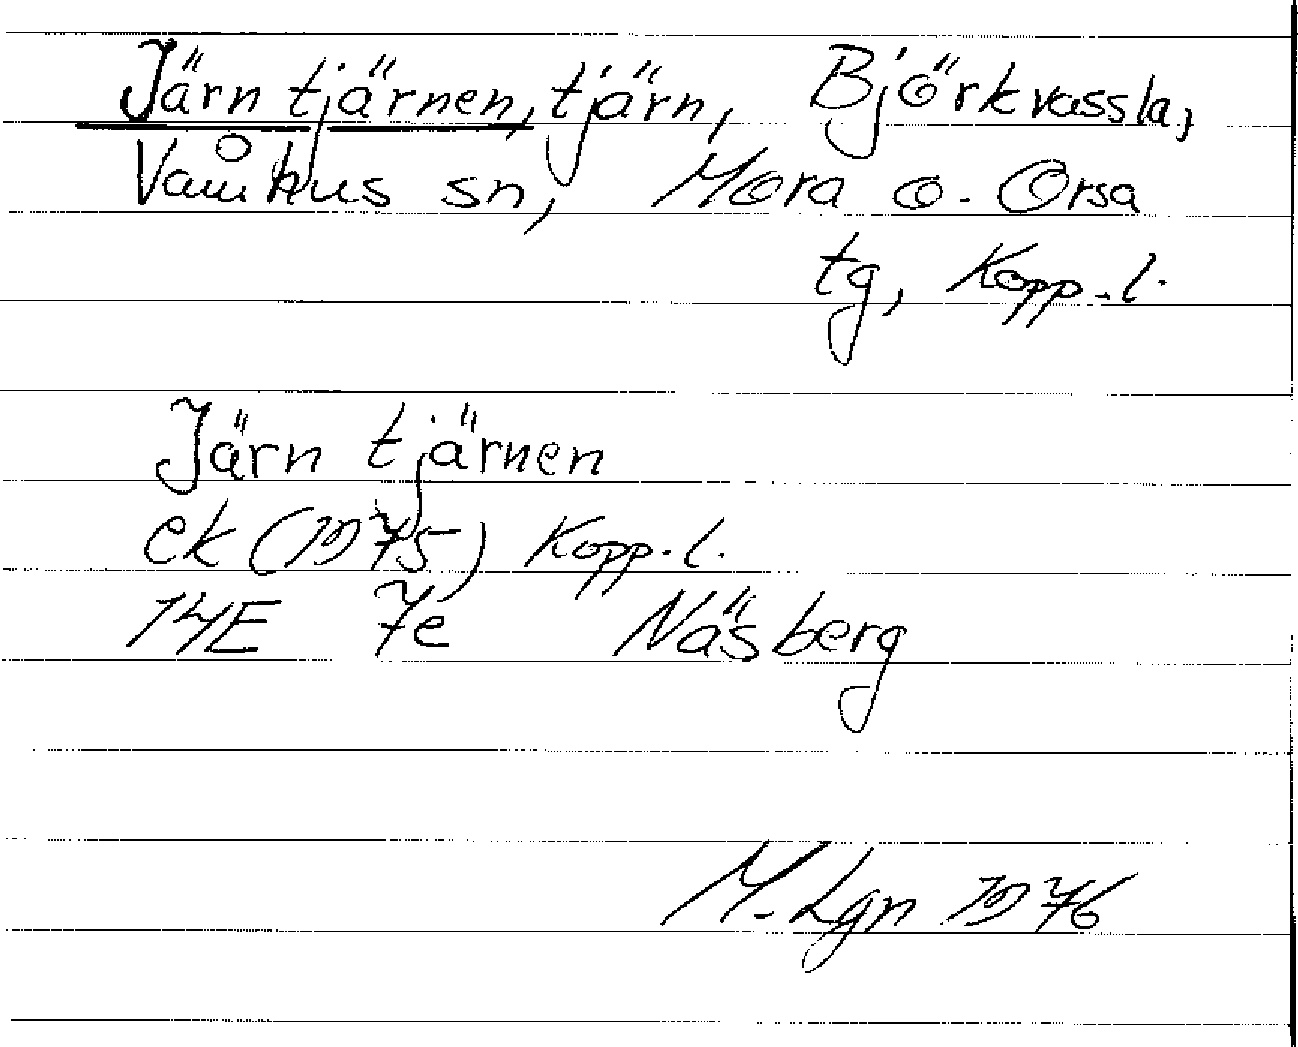 Järn tjärnen, tjärn, Björkvassla,
Våmhus sn, Mora o. Orsa
tg, Kopp.l.
Järn tjärnen
ek (1975) Kopp.l.
14E 7e Näsberg
M. Lgn 1976